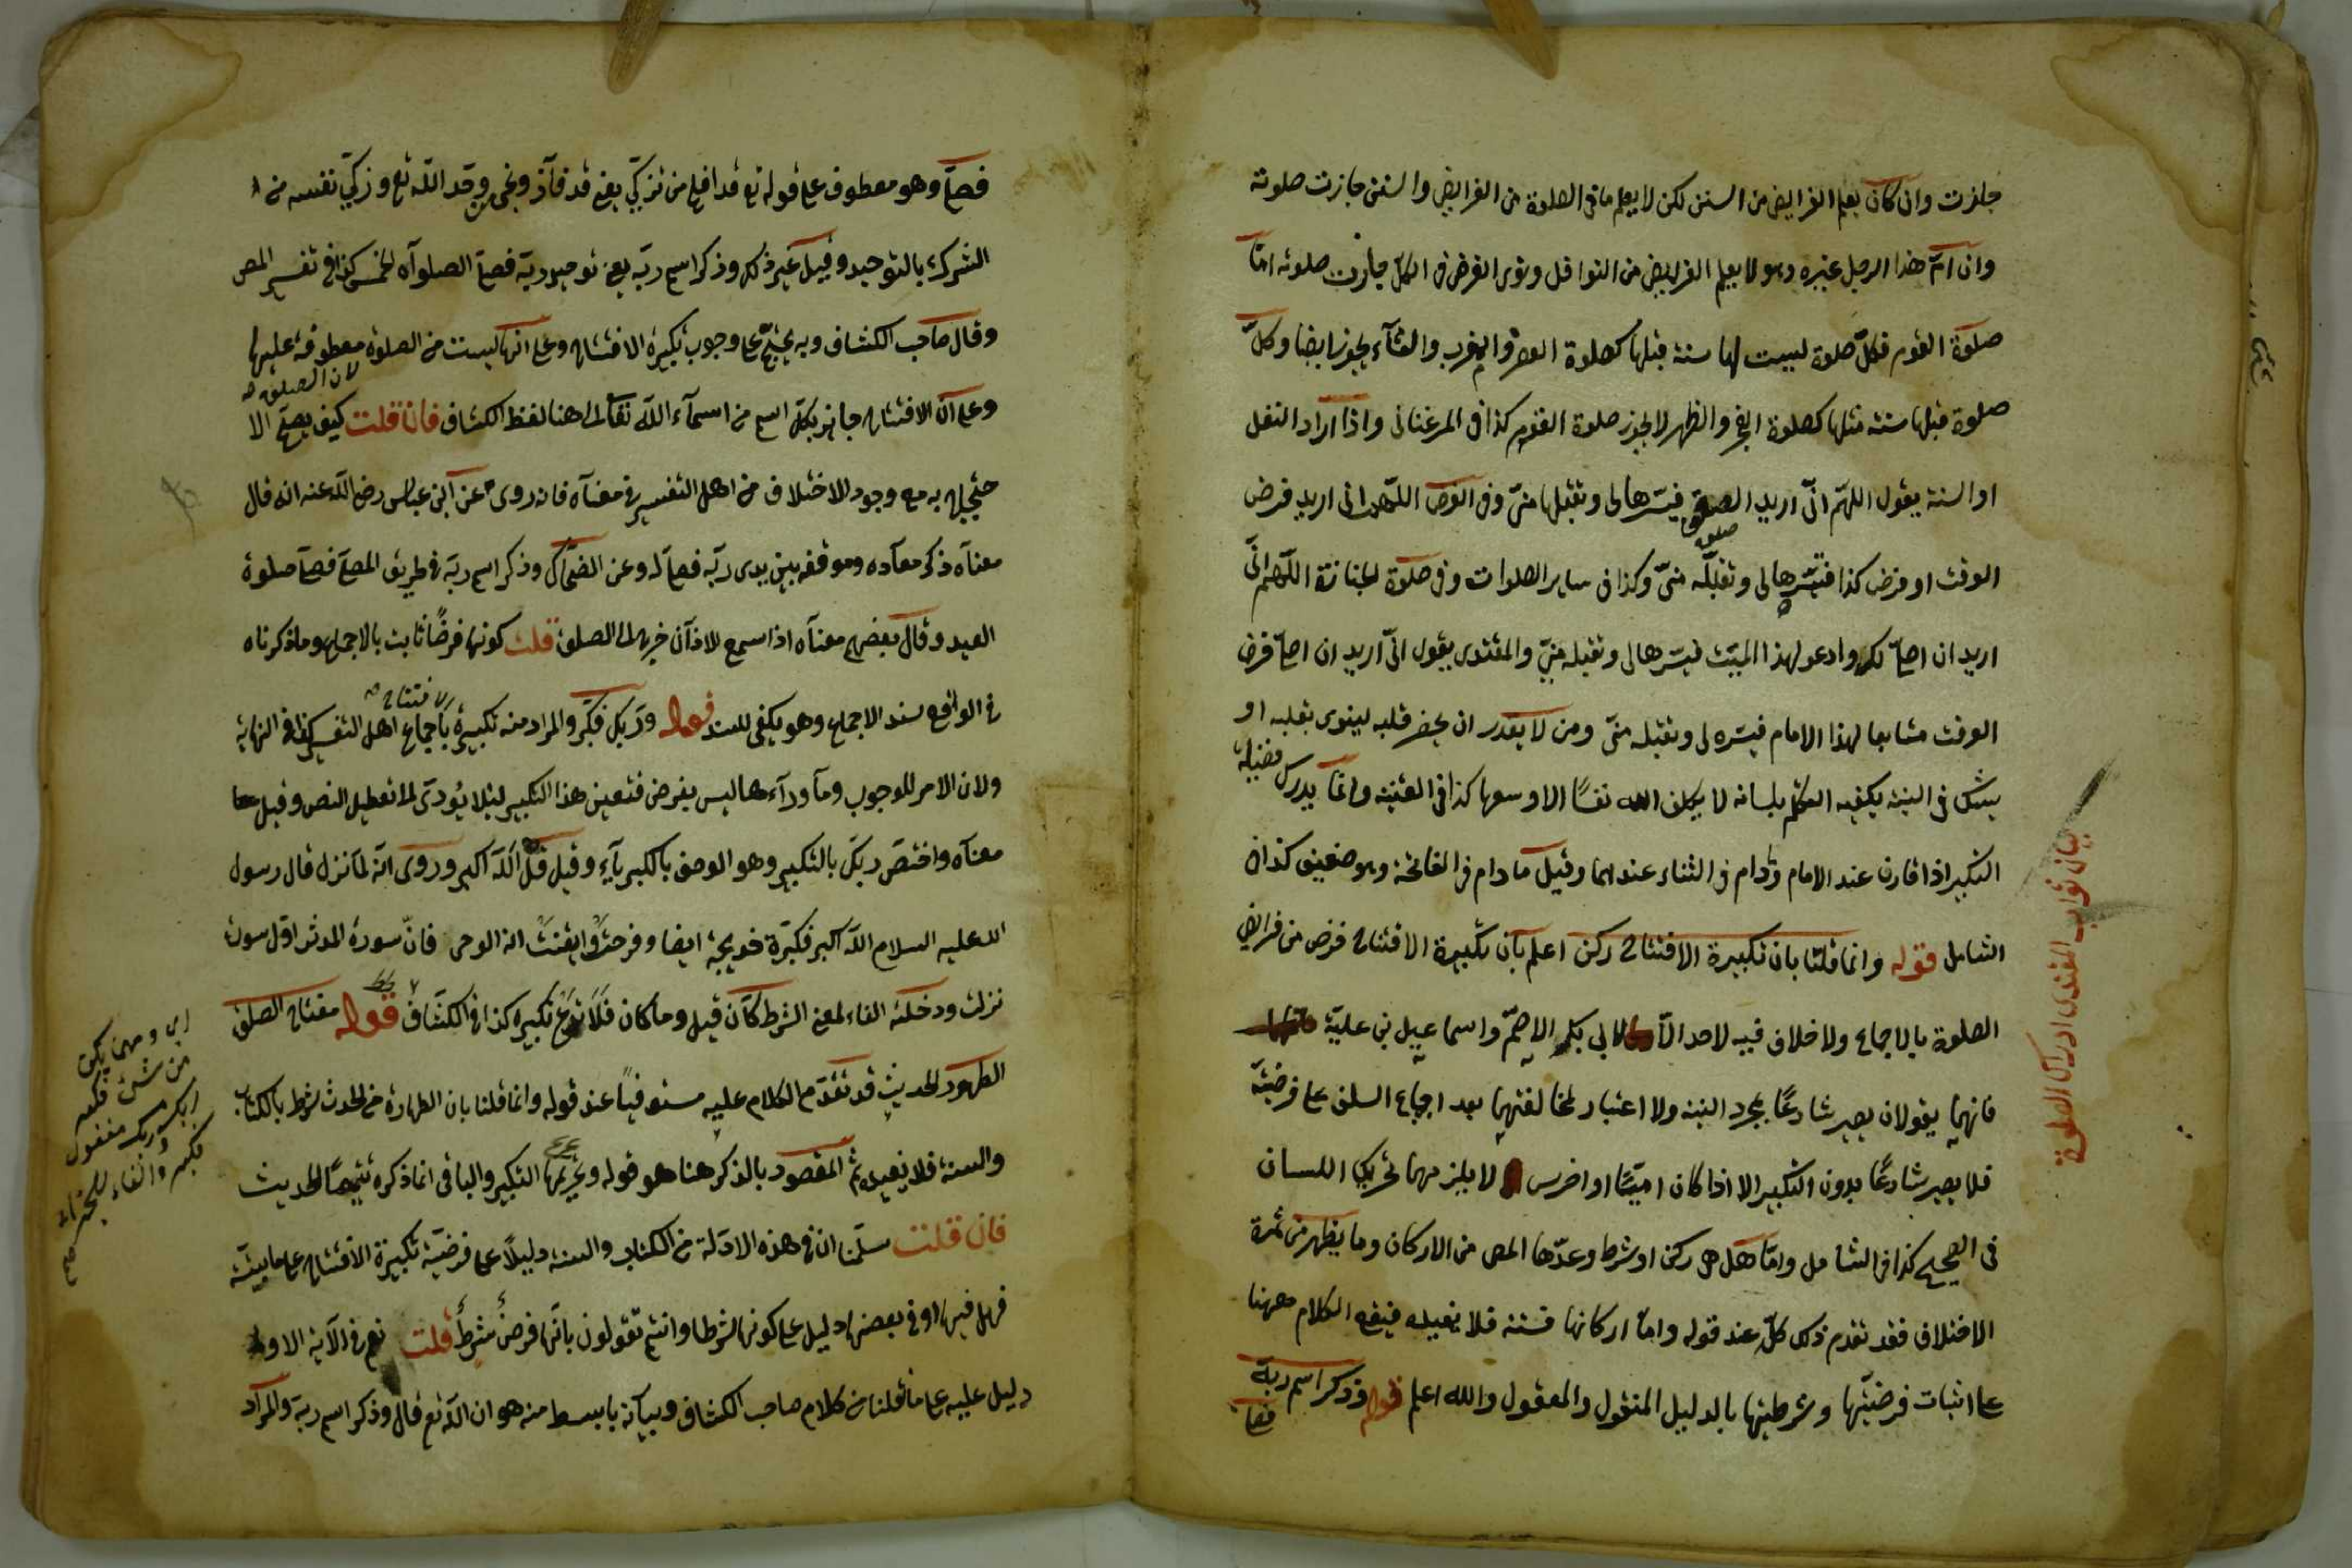 جازت وان كان يعلم الفرايض من السنن لكن لا يعلم ما فى الصلوة من الفرايض والسنن جازت صلوته
وان ام هذا الرجل غيره وهو لا يعلم الفرايض من النوافل ونوى الفرض فى الكل جازت صلوته اما
صلوة القوم فكل صلوة ليست لها سنة قبلها كصلوة العصر والمغرب والعشآء يجوز ايضا وكل
صلوة قبلها سنة مثلها كصلوة الفجر والظهر لا يجوز صلوة القوم كذا فى المرغنانى واذا اراد النفل
او السنة يقول اللهم انى اريد الصلوة فيسرها لى وتقبلها منى وفى الفرض اللهم انى اريد فرض
الوقت او فرض كذا فيسرها لى وتقبله منى وكذا فى ساير الصلوات وفى صلوة الجنازة اللهم انى
اريد ان اصلى لك وادعو لهذا الميت فيسرها لى وتقبله منى والمقتدى يقول انى اريد ان اصلى فرض
الوقت متابعا لهذا الامام فيسره لى وتقبله منى ومن لا يقدر ان يحضر قلبه لينوى بقلبه او
يشك فى النية يكفيه التكلم بلسانه لا يكلف الله نفسًا الا وسعها كذا فى القنية وانما يدرك فضيلة
التكبير اذا قارن عند الامام ودام فى الثناء عندهما وقيل ما دام فى الفاتحة وهو ضعيف كذا فى
الشامل قوله وانما قلنا بان تكبيرة الافتتاح ركن اعلم بان تكبيرة الافتتاح فرض من فرايض
الصلوة بالاجماع ولا خلاف فيه لاحد الا لابى بكر الاصم واسماعيل بن علية
فانهما يقولان يصير شارعًا بمجرد النية ولا اعتبار لمخالفتهما بعد اجماع السلف على فرضيته
فلا يصير شارعًا بدون التكبير الا اذا كان اميًا او اخرس لا يلزمهما تحريك اللسان
فى الصحيح كذا فى الشامل واما هل هى ركن او شرط وعدها المص من الاركان وما يظهر من ثمرة
الاختلاف فقد تقدم ذلك كله عند قوله واما اركانها فستة فلا نعيده فيقع الكلام ههنا
على اثبات فرضيتها وشرطيتها بالدليل المنقول والمعقول والله اعلم قوله وذكر اسم ربه
فصلى
بيان ثواب المقتدى ادراك الصلوة
فصلى وهو معطوف على قوله تع قد افلح من تزكى يعنى قد فاز ونجى من وحد الله تع وزكى نفسه من
الشرك بالتوحيد وقيل غير ذلك وذكر اسم ربه يعنى توحيد ربه فصلى الصلوآه الخمس كذا فى تفسير المص
وقال صاحب الكشاف وبه يحتج على وجوب تكبيرة الافتتاح وعلى انها ليست من الصلوة معطوفة عليها
لان الصلوة
وعلى ان الافتتاح جائز بكل اسم من اسمآء الله تعالى الى هنا لفظ الكشاف فان قلت كيف يصح الا
حتجاج به مع وجود الاختلاف من اهل التفسير فى معنآه فانه روى عن ابن عباس رضى الله عنه انه قال
معنآه ذكر معآده وموقفه بين يدى ربه فصلى له وعن الضحاك وذكر اسم ربه فى طريق المصلى فصلى صلوة
العيد وقال بعضهم معنآه اذا سمع الاذان خرج الى الصلوة قلت كونها فرضًا ثابت بالاجماع وما ذكرناه
فى الواقع سند الاجماع وهو يكفى للسند قوله وربك فكبر والمراد منه تكبيرة الافتتاح باجماع اهل التفسير كذا فى النهاية
ولان الامر للوجوب وما ورآءها ليس بفرض فتعين هذا التكبير لئلا يؤدى الى تعطيل النص وقيل
معنآه واختص ربك بالتكبير وهو الوصف بالكبريآء وقيل قل الله اكبر وروى انه لما نزل قال رسول
الله عليه السلام الله اكبر فكبرة خديجة ايضا وفرحت وايقنت انه الوحى فان سورة المدثر اول سورة
نزلت ودخلت الفاء لمعنى الشرط كآن قيل وما كان فلا تدع تكبيره كذا فى الكشاف قوله مفتاح الصلوة
الطهور الحديث قد تقدم الكلام عليه مستوفيًا عند قوله وانما قلنا بان الطهارة من الحدث شرط بالكتاب
والسنة فلا نعيده ثم المقصود بالذكر هنا هو قوله وتحريمها التكبير والباقى انما ذكره تتميمًا للحديث
فان قلت سلمنا ان فى هذه الادلة من الكتاب والسنة دليلًا على فرضية تكبيرة الافتتاح على ما بينته
فهل فيها او فى بعضها دليل على كونها شرطا وانتم تقولون بانها فرض شرط قلت نعم فى الآية الاولى
دليل عليه على ما نقلنا من كلام صاحب الكشاف وبيانه بابسط منه هو ان الله تع قال وذكر اسم ربه والمراد
اى ومهما يكن
من شئ فكبر
ربك وربك مفعول
فكبر والفاء للجزاء
صح